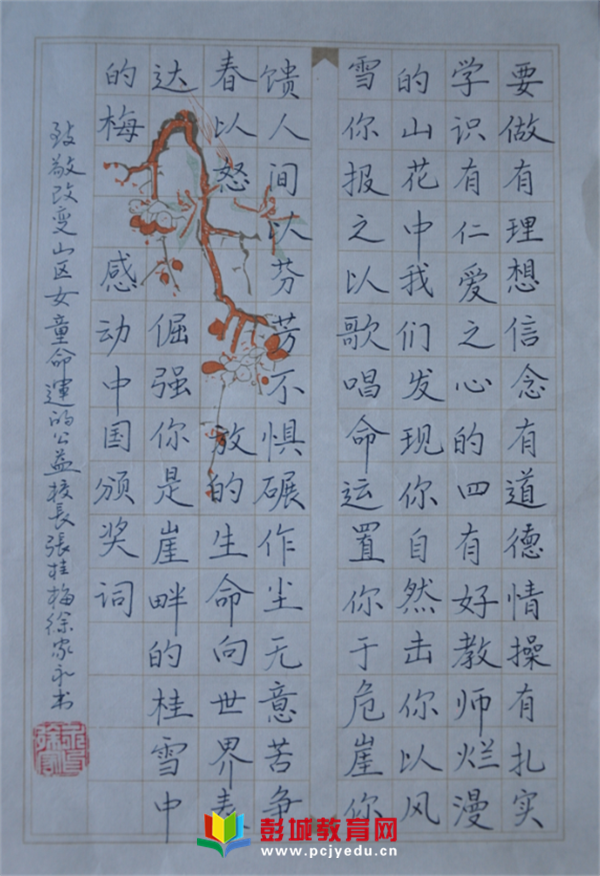 要做有理想信念有道德情操有扎实
学识有仁爱之心的四有好教师烂漫
的山花中我们发现你自然击你以风
雪你报之以歌唱命运置你于危崖你
馈人间以芬芳不惧碾作尘无意苦争
春以怒放的生命向世界表
达倔强你是崖畔的桂雪中
的梅感动中国颁奖词
致敬改变山区女童命運的公益校長張桂梅徐家永书
彭城教育网
www.pcjyedu.cn